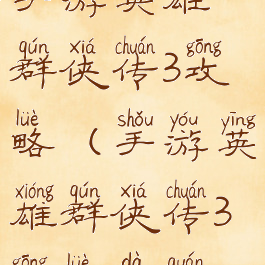 手游英雄
qún xiá chuán gōng
群侠传3攻
lüè shǒu yóu yīng
略（手游英
xióng qún xiá chuán
雄群侠传3
gōng lüè dà quán